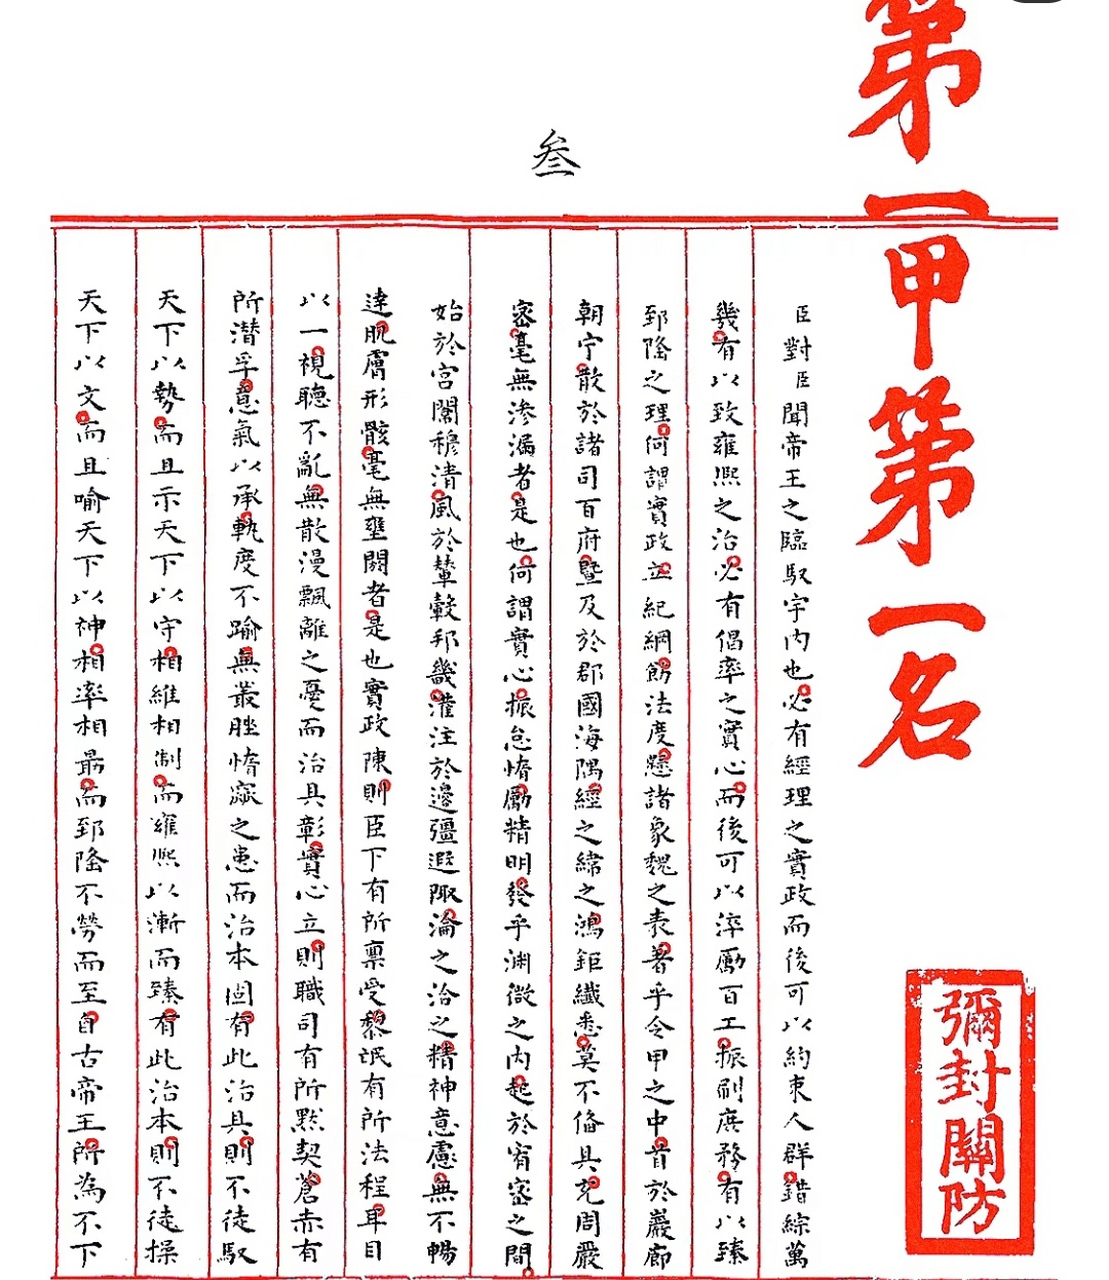 第一甲第一名
彌封關防
叁
臣對臣聞帝王之臨馭宇内也必有經理之實政而後可以約束人群錯綜萬
幾有以致雍熙之治必有倡率之實心而後可以淬勵百工振刷庶務有以臻
郅隆之理何謂實政立紀綱飭法度懸諸象魏之表著乎令甲之中首於巖廊
朝宁散於諸司百府暨及於郡國海隅經之緯之鴻鉅纖悉莫不備具充周嚴
密毫無滲漏者是也何謂實心振怠惰勵精明發乎渊微之内起於宥密之間
始於宮闈穆清風於輦轂邦畿灌注於邊疆遐陬淪之洽之精神意慮無不暢
達肌膚形骸毫無壅閼者是也實政陳則臣下有所禀受黎氓有所法程耳目
以一視聽不亂無散漫飄離之憂而治具彰實心立則職司有所默契蒼赤有
所潛孚意氣以承軌度不踰無叢脞惰窳之患而治本固有此治具則不徒馭
天下以勢而且示天下以守相維相制而雍熙以漸而臻有此治本則不徒操
天下以文而且喻天下以神相率相勗而郅隆不勞而至自古帝王所為不下